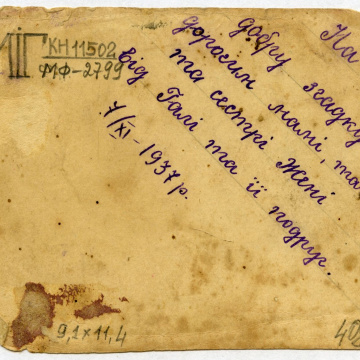 МІГ КН 11502
МФ-2799
На
добру згадку
дорогим мамі, та
та сестрі Жені
від Галі та її подруг.
7/XI-1937 р.
9,1×11,4
40